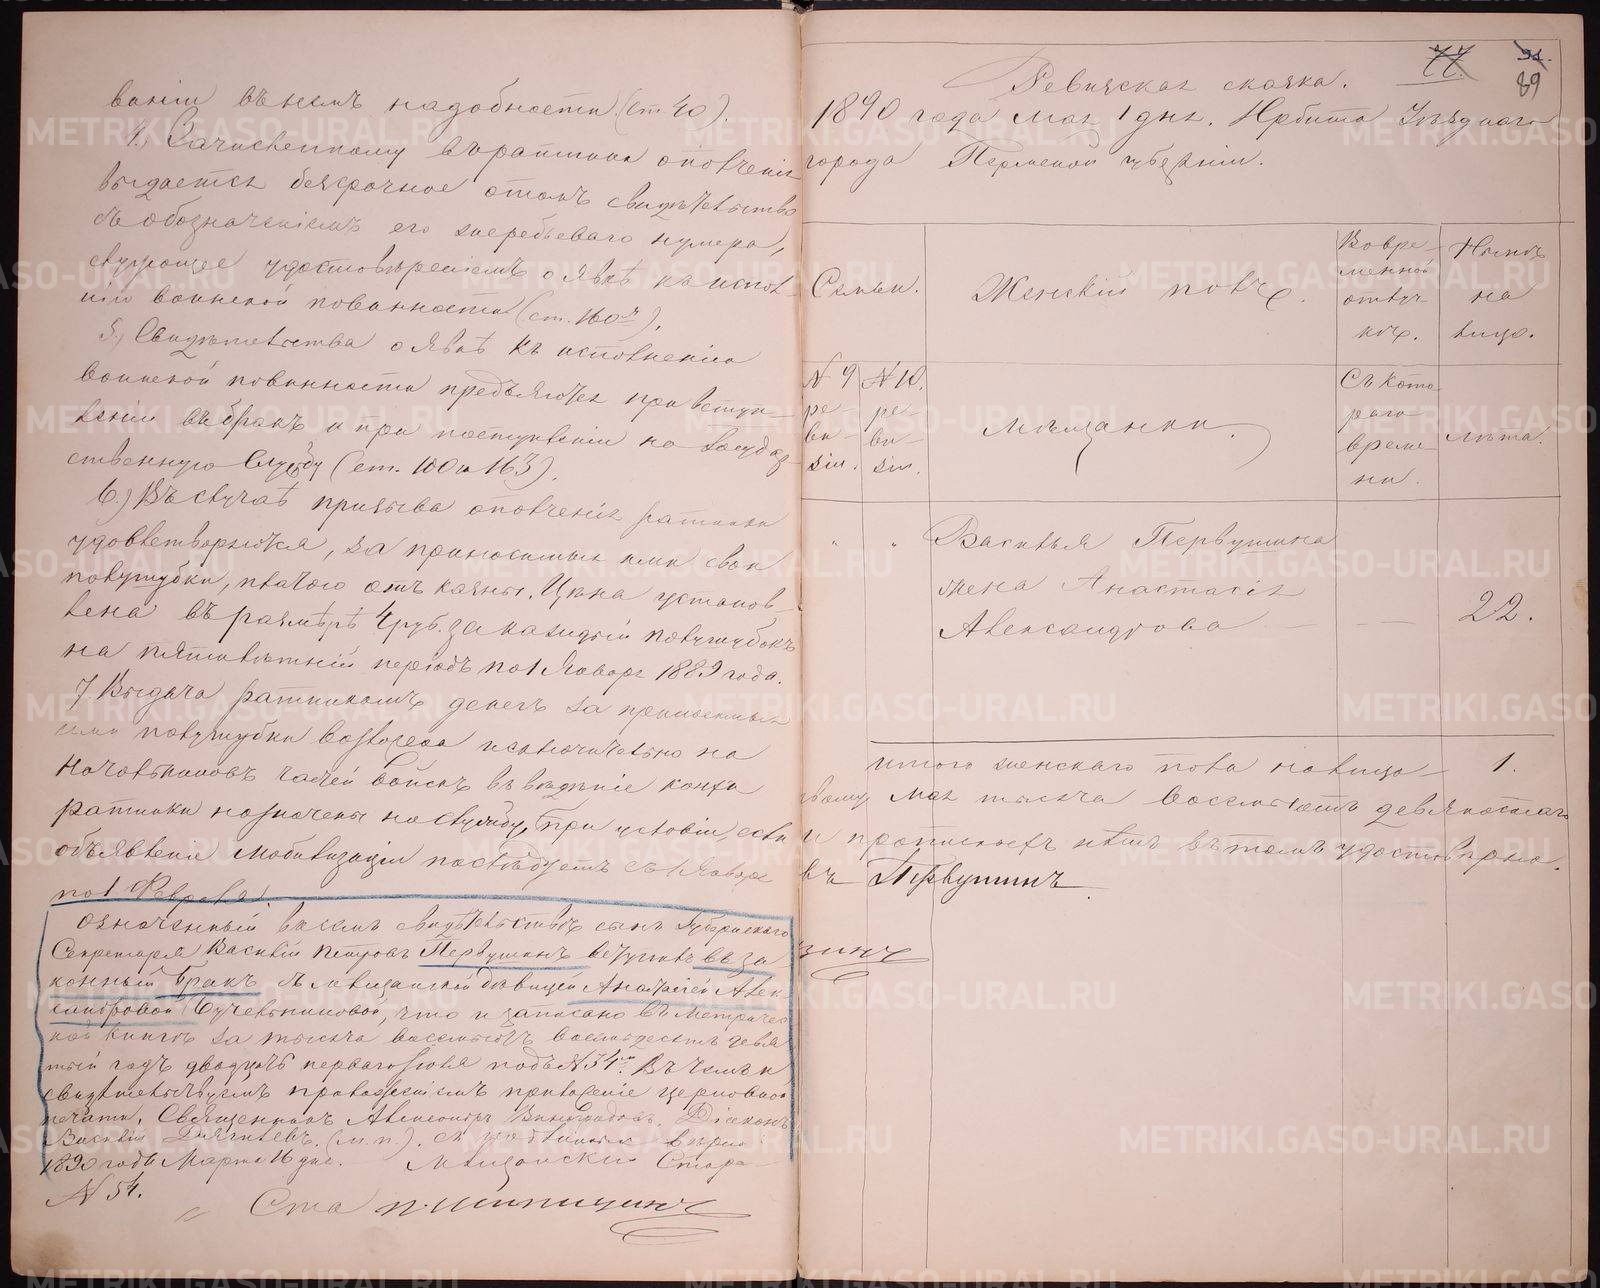 ваніи въ немъ надобности (ст 40).
4, Зачисленному въ ратники ополченія
выдается безсрочное о томъ свидѣтельство
съ обозначеніемъ его жеребьеваго нумера,
служащее удостовѣреніемъ о явкѣ къ испол-
нію воинской повинности (ст. 160я).
5, Свидѣтельства о явкѣ къ исполненію
воинской повинности предъявляются при вступ-
леніи въ бракъ и при поступленіи на Государ-
ственную Службу (ст. 160 и 163).
6,) Въ случаѣ призыва ополченія ратники
удовлетворяются, за приносимыя ими свои
полушубки, платою отъ казны. Цѣна установ-
лена въ размѣрѣ 4 руб. за каждый полушубокъ
на пятилѣтній періодъ по 1 Января 1889 года.
7. Выдача ратникамъ денегъ за приносимыя
ими полушубки возложена исключительно на
Начальниковъ частей войскъ въ вѣдѣніе коихъ
ратники назначены на службу, при условіи, если
объявленіе мобилизаціи послѣдуетъ съ 1 Января
по 1 Февраля.
Означенный въ семъ свидѣтельствѣ сынъ Губернскаго
Секретаря Василій Петровъ Первушинъ вступилъ въ за
конный Бракъ съ мѣщанской дѣвицей Анастасіей Алек
сандровой Бучельниковой, что и записано въ Метричес
кой книгѣ за тысяча восемьсотъ восемьдесятъ девя
тый годъ двадцать перваго Іюня подъ № 34мъ. Въ чемъ и
свидѣтельствуемъ съ приложеніемъ церковной
печати. Священникъ Александръ Виноградовъ. Діаконъ
Василій Дягилевъ. (м.п.). Съ подлиннымъ вѣрно:
1890 года Марта 16 дня. Мѣщанскій Старо
№ 54.
Ста П. Шипицинъ
77. 91.
89
Ревизская сказка.
1890 года Мая 1 дня. Ирбита Уѣзднаго
города Пермской губерніи.
Семьи. Женскій полъ. Во вре- Нынѣ
менной на
отлуч- лицо.
кѣ.
№ 9 № 10. Мѣщанки. Съ кото- Лѣта.
ре- ре- раго
ви- ви- време-
зіи. зіи. ни.
" " Василья Первушина
жена Анастасія
Александрова — — — 22.
Итого женскаго пола на лицо — 1.
Мая тысяча восемьсотъ девяностаго
и прописныхъ нѣтъ въ томъ удостовѣряю.
въ Первушинъ
щинъ